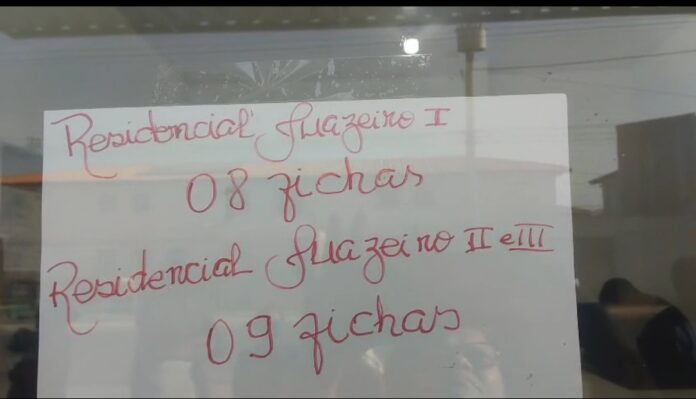 Residencial Juazeiro I
08 fichas
Residencial Juazeiro II e III
09 fichas